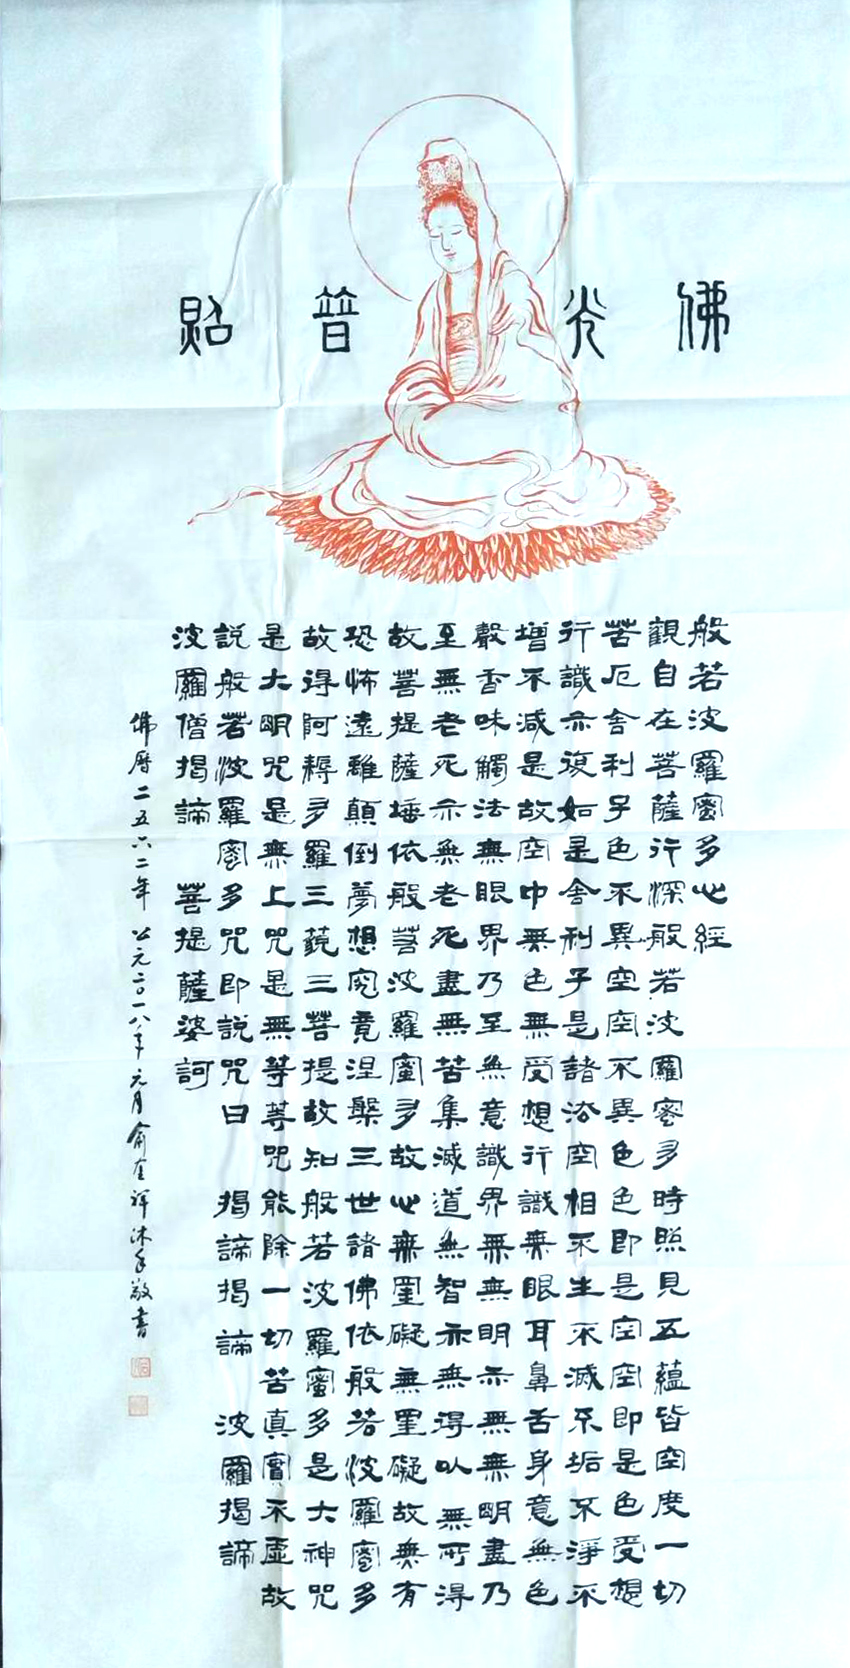 佛光普照
般若波羅蜜多心經
觀自在菩薩行深般若波羅蜜多時照見五蘊皆空度一切
苦厄舍利子色不異空空不異色色即是空空即是色受想
行識亦復如是舍利子是諸法空相不生不滅不垢不淨不
增不減是故空中無色無受想行識無眼耳鼻舌身意無色
聲香味觸法無眼界乃至無意識界無無明亦無無明盡乃
至無老死亦無老死盡無苦集滅道無智亦無得以無所得
故菩提薩埵依般若波羅蜜多故心無罣礙無罣礙故無有
恐怖遠離顛倒夢想究竟涅槃三世諸佛依般若波羅蜜多
故得阿耨多羅三藐三菩提故知般若波羅蜜多是大神咒
是大明咒是無上咒是無等等咒能除一切苦真實不虛故
說般若波羅蜜多咒即說咒曰 揭諦揭諦 波羅揭諦
波羅僧揭諦 菩提薩婆訶
佛曆二五六二年 公元二〇一八年元月俞奎祥沐手敬書